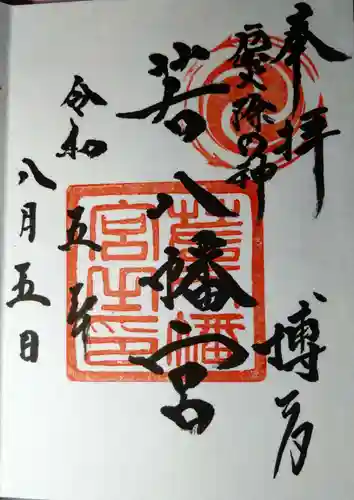 奉拝
博多
厄除の神
若八幡宮
令和五年
八月五日